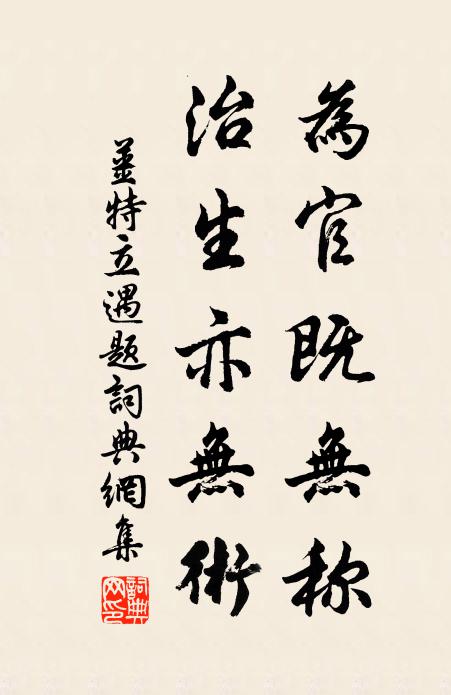 為官既無称
治生亦無術
薑特立遇題詞典網集
詞典
网印